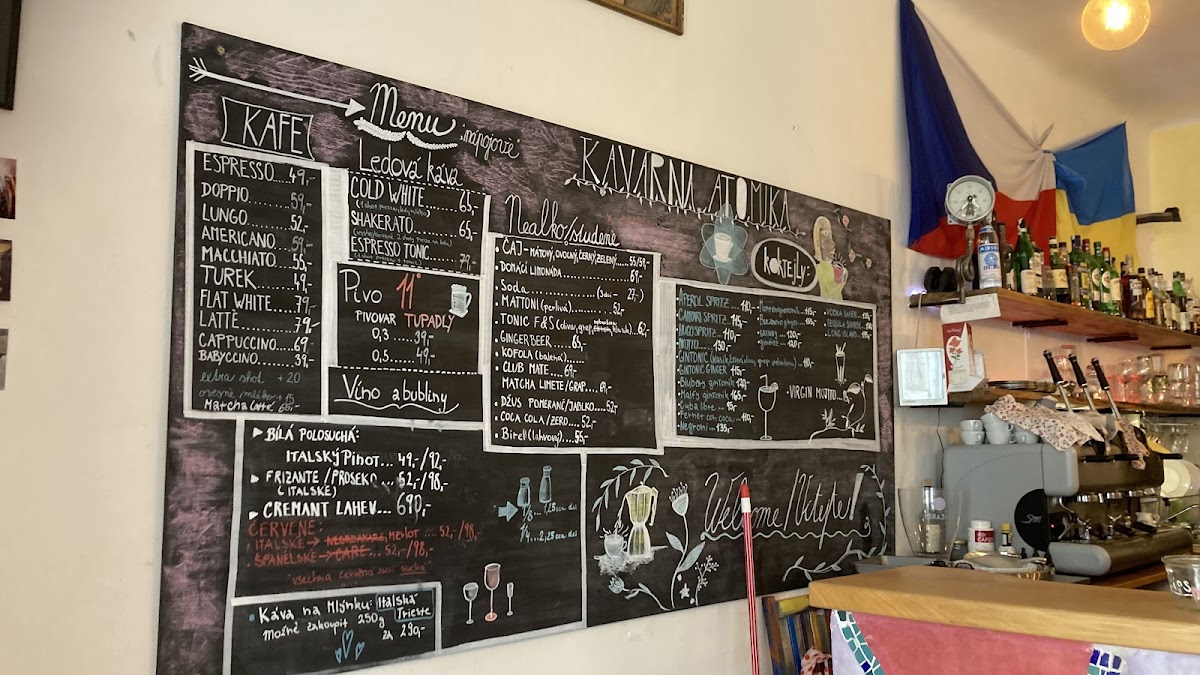 Menu
"nápojové"
KAVÁRNA ATOMIKA
KAFE
ESPRESSO....49,-
DOPPIO.......59,-
LUNGO.......52,-
AMERICANO...59,-
MACCHIATO...55,-
TUREK.......49,-
FLAT WHITE...79,-
LATTÉ........79,-
CAPPUCCINO...69,-
BABYCCINO....39,-
extra shot +20
ovesné mléko +15
Matcha Latté
Ledová káva
COLD WHITE...65,-
SHAKERATO....65,-
ESPRESSO TONIC
79,-
Pivo 11°
PIVOVAR TUPADLY
0,3....39,-
0,5....49,-
Víno a bubliny
Nealko/studené
• ČAJ - MÁTOVÝ, OVOCNÝ, ČERNÝ, ZELENÝ.....55/59,-
• DOMÁCÍ LIMONÁDA........69,-
• Soda
• MATTONI (perlivá).......52,-
• TONIC F&S
62,-
• GINGER BEER.....65,-
• KOFOLA (balená)
• CLUB MATE....69,-
MATCHA LIMETE/GRAP...69,-
• DŽUS POMERANČ/JABLKO....52,-
• COCA COLA/ZERO.....52,-
• Birell (lahvový)....55,-
koktejly:
APEROL SPRITZ...110,-
CAMPARI SPRITZ...115,-
HUGO SPRITZ...115,-
MOJITO.....130,-
GINTONIC
GINTONIC GINGER
Malfy gintonik
Cuba libre
Fernet con coca
Negroni...135,-
VODKA SOUR
TEQUILA SUNRISE
LONG ISLAND
• VIRGIN MOJITO
▶ BÍLÁ POLOSUCHÁ:
ITALSKÝ Pinot...49,-/92,-
▶ FRIZANTE/PROSEKO...52,-/98,-
(ITALSKÉ)
▶ CREMANT LAHEV...690,-
ČERVENÉ:
• ITALSKÉ→ Merlot...52,-/98,-
• ŠPANĚLSKÉ→ CARE...52,-/98,-
"všechna červená jsou suchá"
1/8...1,25cca dcl
1/4...2,25cca dcl
• Káva na Mlýnku: Italská
Trieste
Možné zakoupit 250g
za 290,-
Welcome/Vítejte!